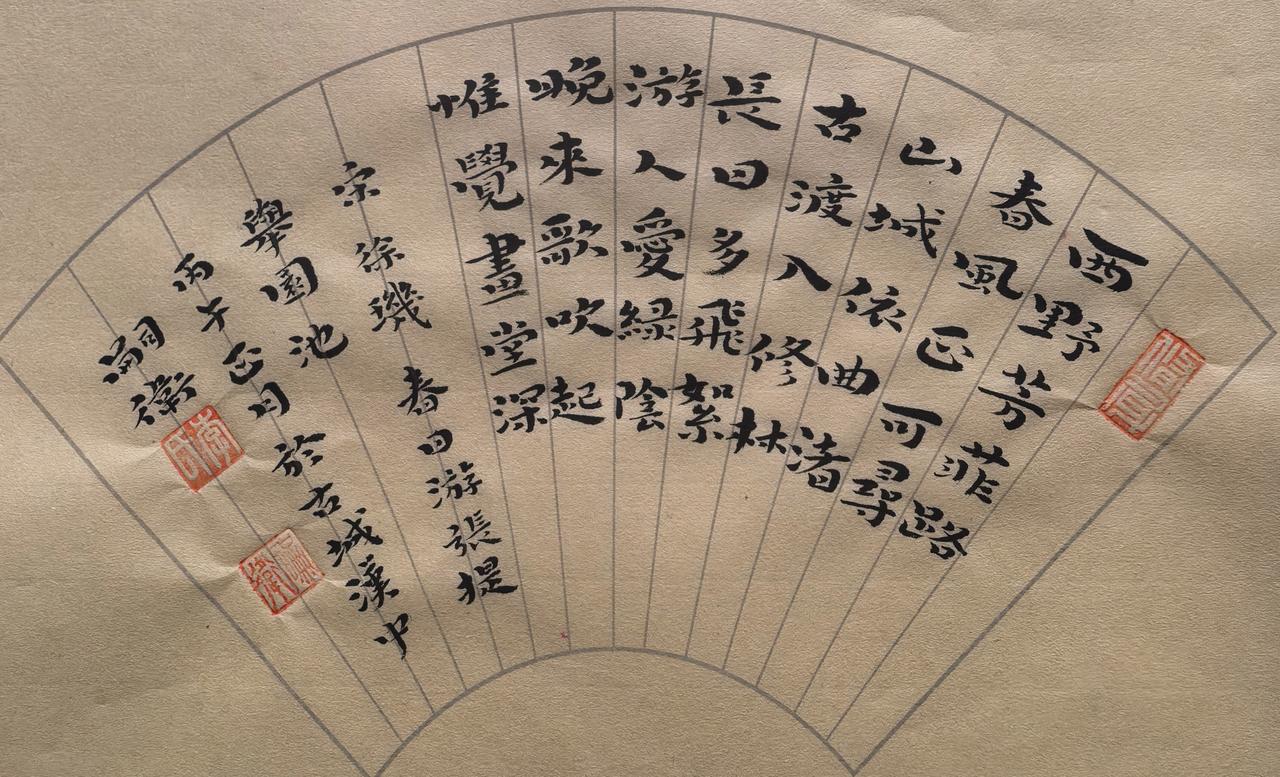 西野芳菲路
春風正可尋
山城依曲渚
古渡入修林
長日多飛絮
游人愛綠陰
晚來歌吹起
惟覺畫堂深
宋徐璣春日游張提
舉園池
丙午正月於古城漢中
嗣衛